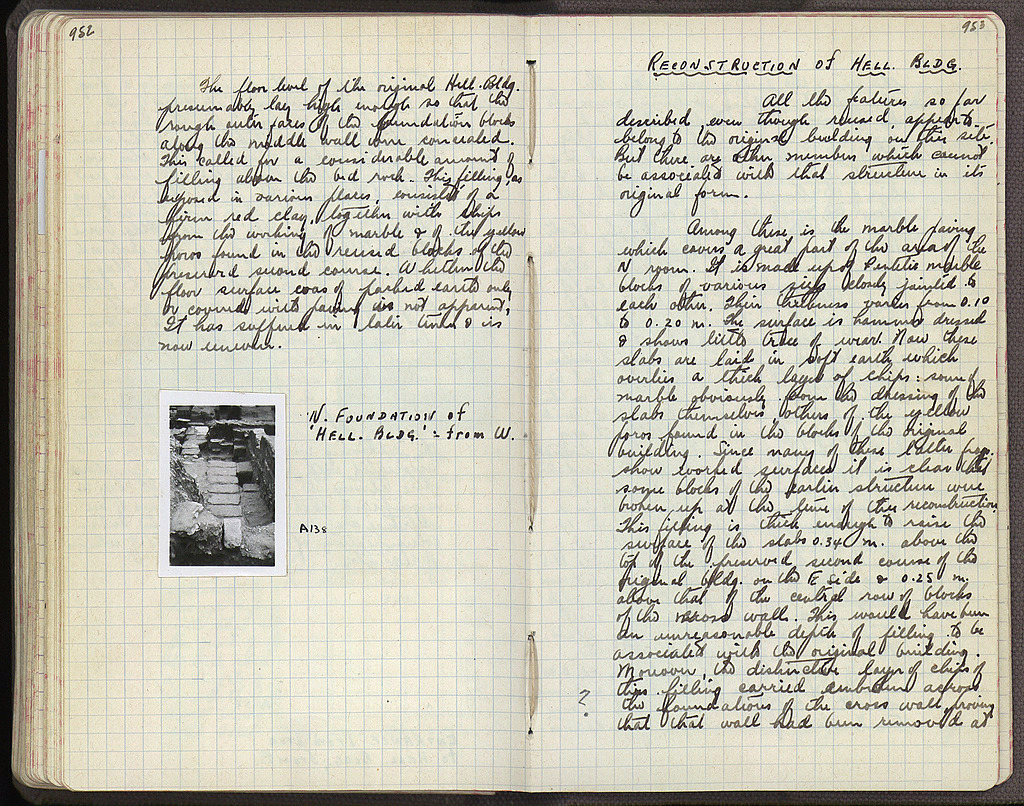 952
The floor level of the original Hell. Bldg.
presumably lay high enough so that the
rough outer faces of the foundation blocks
along the middle wall were concealed.
This called for a considerable amount of
filling above the bed rock. This filling, as
exposed in various places, consists of a
firm red clay, together with chips
from the working of marble & of the yellow
poros found in the reused blocks of the
preserved second course. Whether the
floor surface was of packed earth only
or covered with paving is not apparent.
It has suffered in later times & is
now uneven.
N. FOUNDATION of
'HELL. BLDG.' = from W.
A138
953
RECONSTRUCTION of HELL. BLDG.
All the features so far
described even though reused appear to
belong to the original building on this site.
But there are other members which cannot
be associated with that structure in its
original form.
Among these is the marble paving
which covers a great part of the area of the
N room. It is made up of Pentelic marble
blocks of various sizes closely jointed to
each other. Their thickness varies from 0.10
to 0.20 m. The surface is hammer dressed
& shows little trace of wear. Now these
slabs are laid in soft earth which
overlies a thick layer of chips: some of
marble obviously from the dressing of the
slabs themselves others of the yellow
poros found in the blocks of the original
building. Since many of these latter frag.
show worked surfaces it is clear that
some blocks of the earlier structure were
broken up at the time of this reconstruction.
This filling is thick enough to raise the
surface of the slabs 0.34 m. above the
top of the preserved second course of the
original bldg. on the E side & 0.25 m.
above that of the central row of blocks
of the cross wall. This would have been
an unreasonable depth of filling to be
associated with the original building.
Moreover, the distinctive layer of chips of
this filling carried unbroken across
? the foundations of the cross wall proving
that that wall had been removed at